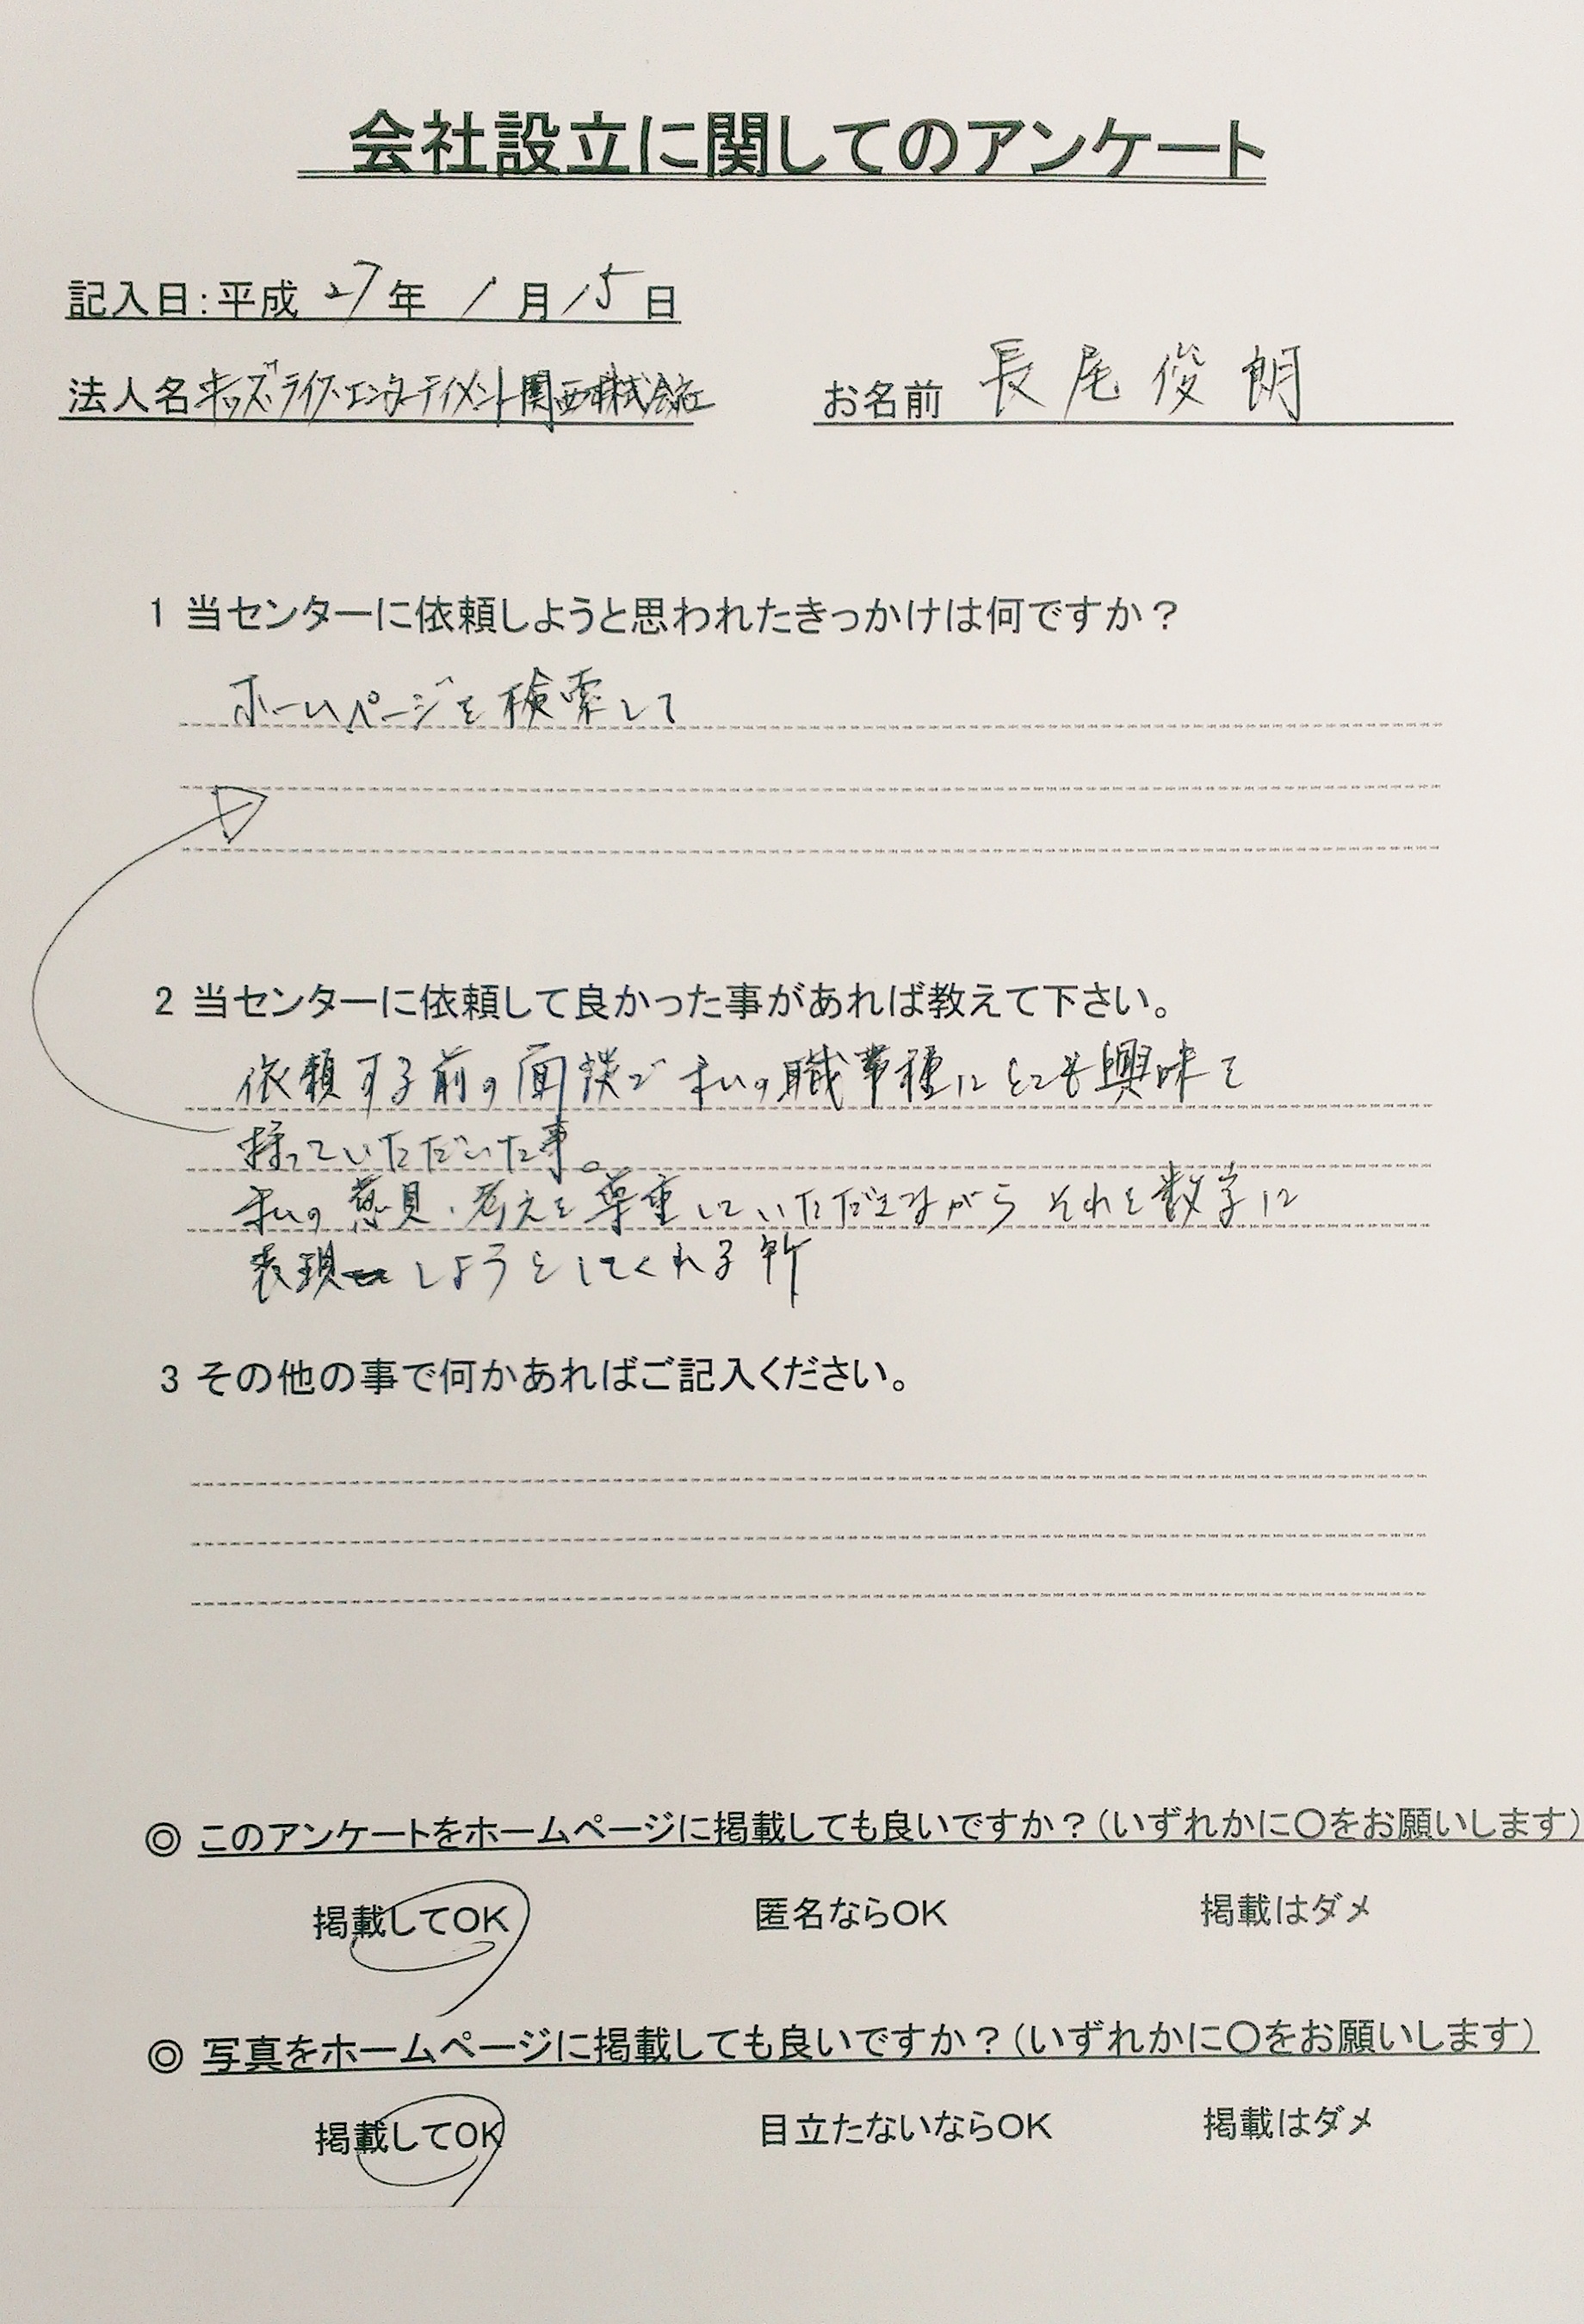 会社設立に関してのアンケート
記入日：平成 27 年 1 月 15 日
法人名 キッズライブ・エンターテイメント関西株式会社
お名前 長尾俊朗
1 当センターに依頼しようと思われたきっかけは何ですか？
ホームページを検索して
2 当センターに依頼して良かった事があれば教えて下さい。
依頼する前の面談で私の職業種にとても興味を
持っていただいた事。
私の意見・考えを尊重していただきながらそれを数字に
表現しようとしてくれる所
3 その他の事で何かあればご記入ください。
◎ このアンケートをホームページに掲載しても良いですか？（いずれかに〇をお願いします）
掲載してOK 匿名ならOK 掲載はダメ
◎ 写真をホームページに掲載しても良いですか？（いずれかに〇をお願いします）
掲載してOK 目立たないならOK 掲載はダメ